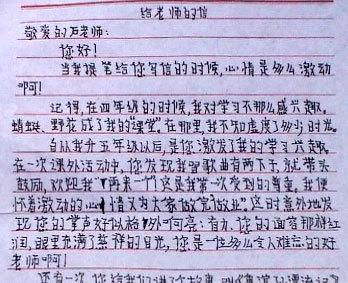 给老师的信
敬爱的石老师:
您好!
当我提笔给您写信的时候,心情是多么激动
啊!
记得,在四年级的时候,我对学习不那么感兴趣。
蜻蜓、野花成了我的"课堂",在那里,我不知虚度了多少时光。
自从我升五年级以后,是您激发了我的学习兴趣。
在一次课外活动中,您发现我唱歌曲有两下子,就带头
鼓励,欢迎我"再来一个"这是我第一次受到的尊重,我便
怀着激动的心情又为大家做完做业"这时意外地发
现您的掌声好似格外响亮:有力,您的面容那样红
润,眼里充满了慈祥的目光,您是一位多么令人难忘的好
老师啊!
还有一次,您给我们讲了故事